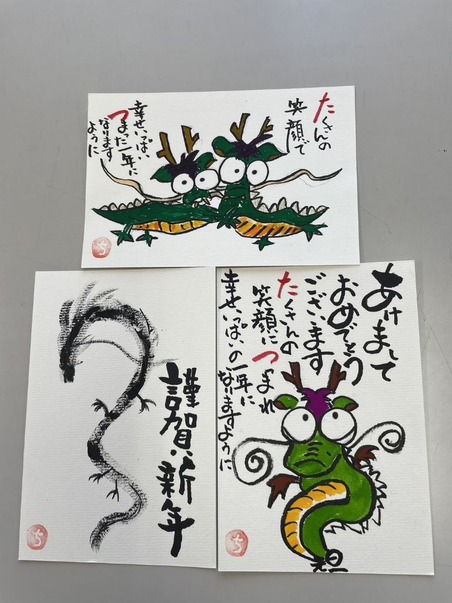 たくさんの
笑顔で
幸せいっぱい
つまった一年に
なります
ように
ち
謹賀新年
ち
あけまして
おめでとう
ございます
たくさんの
笑顔につつまれ
幸せいっぱいの一年に
なりますように
ち